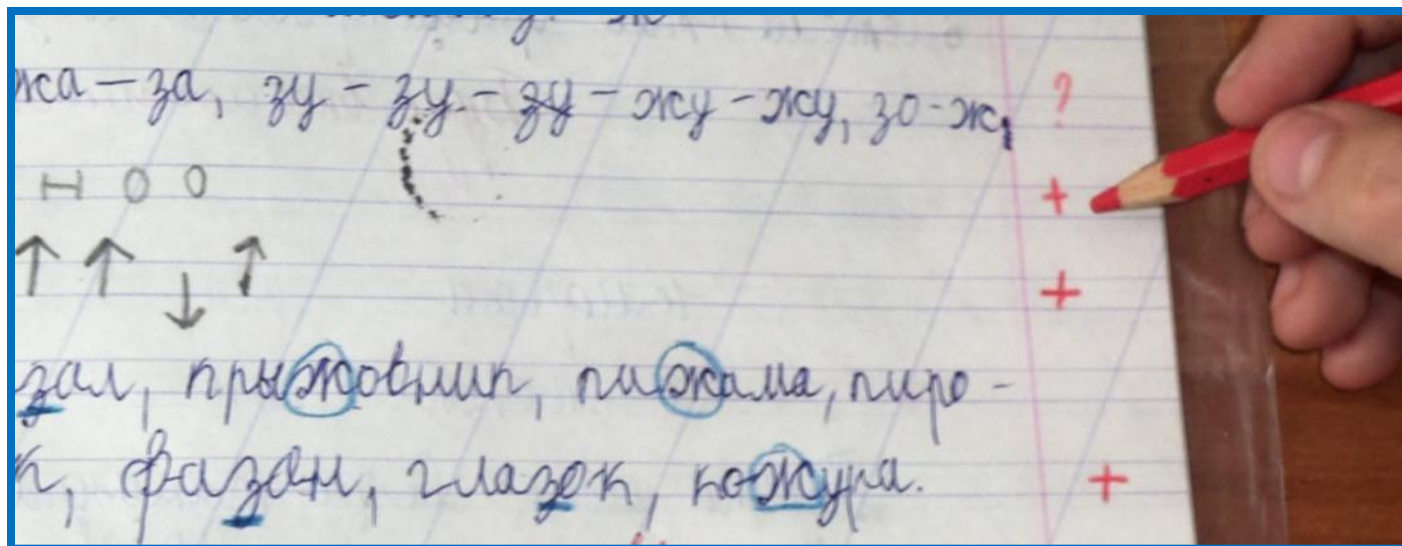 жа – за, зу – зу – зу – жу – жу, зо - ж, ?
Н О О +
↑ ↑ ↓ ↑ +
зал, прыжовник, пижама, пиро -
к, фазан, глазок, кожура. +